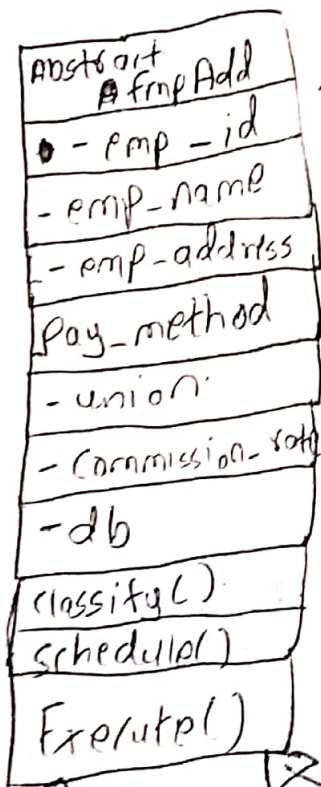 Abstract
EmpAdd
- emp_id
- emp_name
- emp-address
Pay_method
- union
- Commission_rate
- db
classify()
schedule()
Execute()